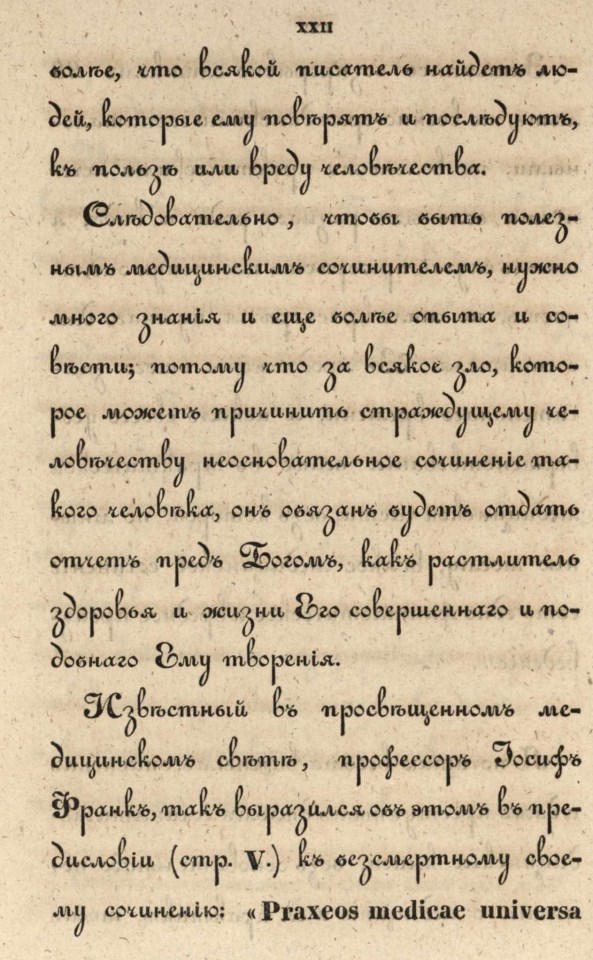 XXII
болѣе, что всякой писатель найдетъ лю-
дей, которые ему повѣрятъ и послѣдуютъ,
къ пользѣ или вреду человѣчества.
Слѣдовательно, чтобы быть полез-
нымъ медицинскимъ сочинителемъ, нужно
много знанія и еще болѣе опыта и со-
вѣсти; потому что за всякое зло, кото-
рое можетъ причинить страждущему че-
ловѣчеству неосновательное сочиненіе та-
кого человѣка, онъ обязанъ будетъ отдать
отчетъ предъ Богомъ, какъ растлитель
здоровья и жизни Его совершеннаго и по-
добнаго Ему творенія.
Извѣстный въ просвѣщенномъ ме-
дицинскомъ свѣтѣ, профессоръ Іосифъ
Франкъ, такъ выразился объ этомъ въ пре-
дисловіи (стр. V.) къ безсмертному свое-
му сочиненію: «Praxeos medicae universa